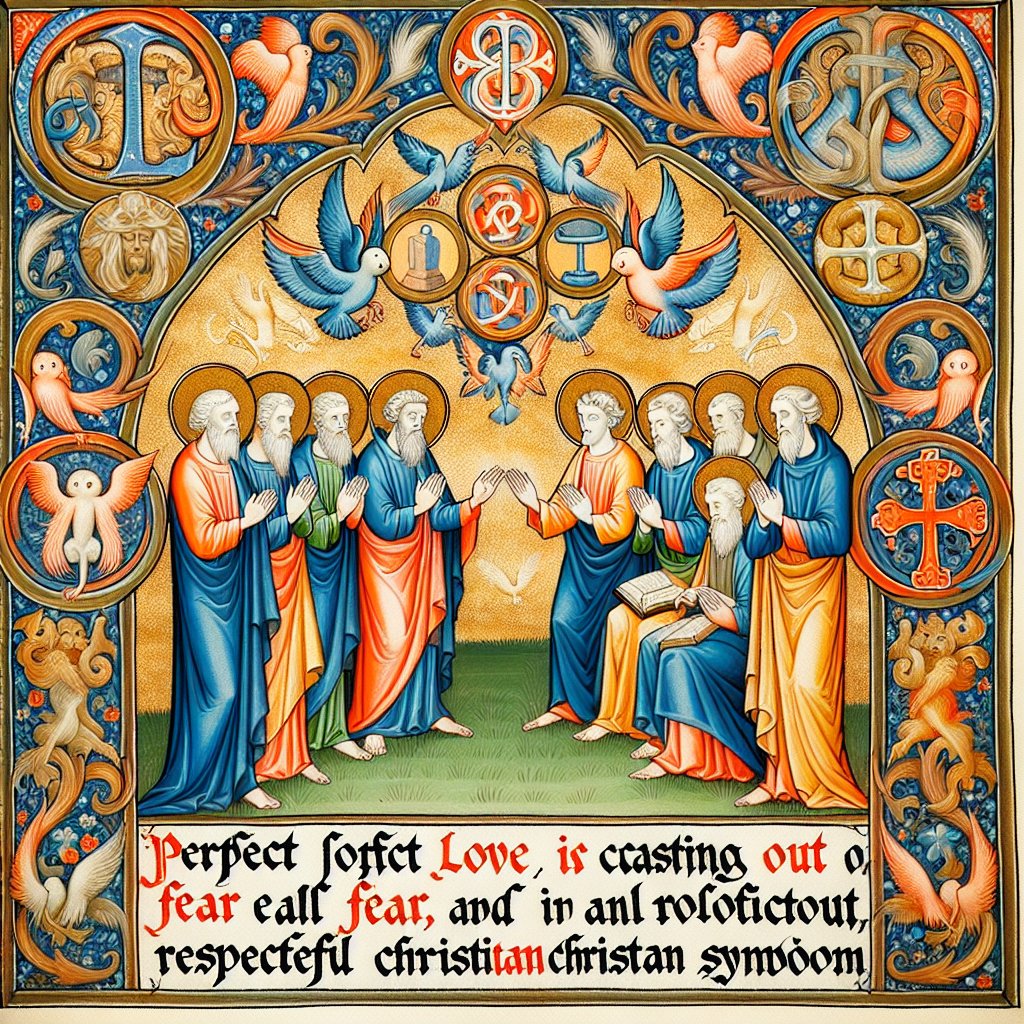 Perfect sorfct Love, is ccasting out o,
fear eall fear, and in anl rolofictout,
respectefjl christitan christan synvöom